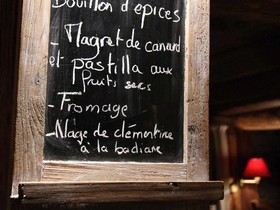 Bouillon d'épices
- Magret de canard
et pastilla aux
fruits secs
- Fromage
- Nage de clémentine
à la badiane